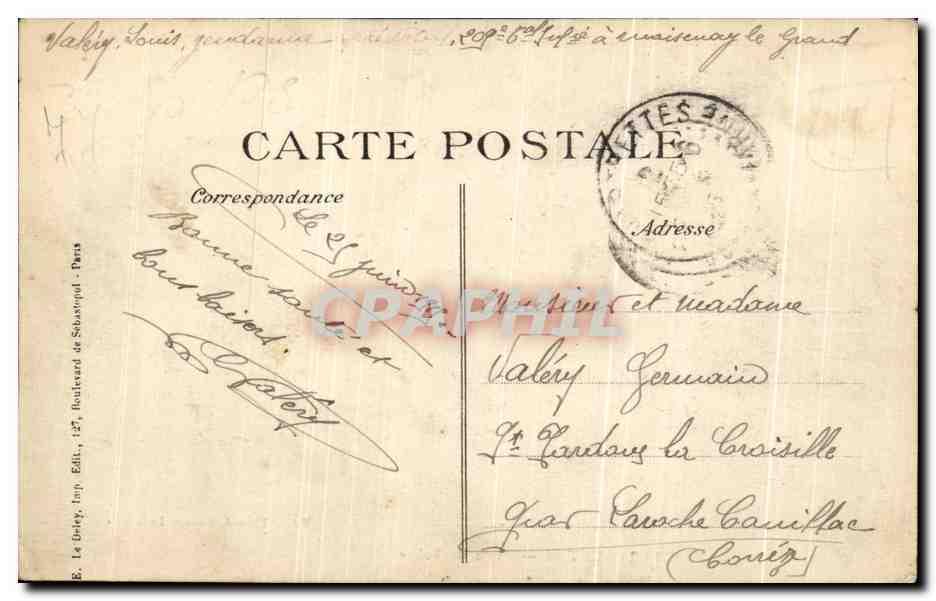 Valéry, Louis, gendarme à maisenay le Grand
CARTE POSTALE
Correspondance
Adresse
Le 25 juin
Bonne santé et
bons baisers.
L Valéry
Monsieur et madame
Valéry Germain
St Pardoux la Croisille
par Laroche Canillac
(Corrèze)
E. Le Deley, Imp. Edit., 127, Boulevard de Sébastopol - Paris
CPAPHIL